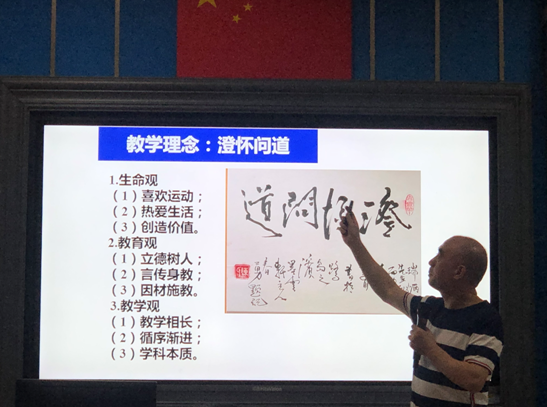 教学理念：澄怀问道
1.生命观
（1）喜欢运动；
（2）热爱生活；
（3）创造价值。
2.教育观
（1）立德树人；
（2）言传身教；
（3）因材施教。
3.教学观
（1）教学相长；
（2）循序渐进；
（3）学科本质。
澄怀问道